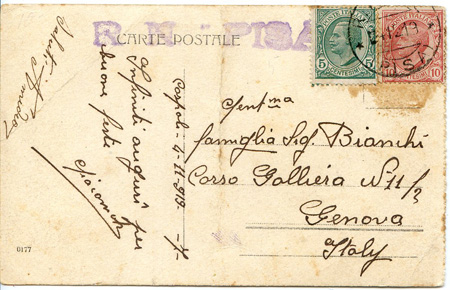 R.N. PISA
CARTE POSTALE
POSTE ITALIANE
5 CENTESIMI 5
POSTE ITALIANE
10
PISA
Saluti
Infiniti auguri per
buone feste
Giacomo
919
Gentma
famiglia Sig. Bianchi
Corso Galliera N 11/2
Genova
Italy
0177